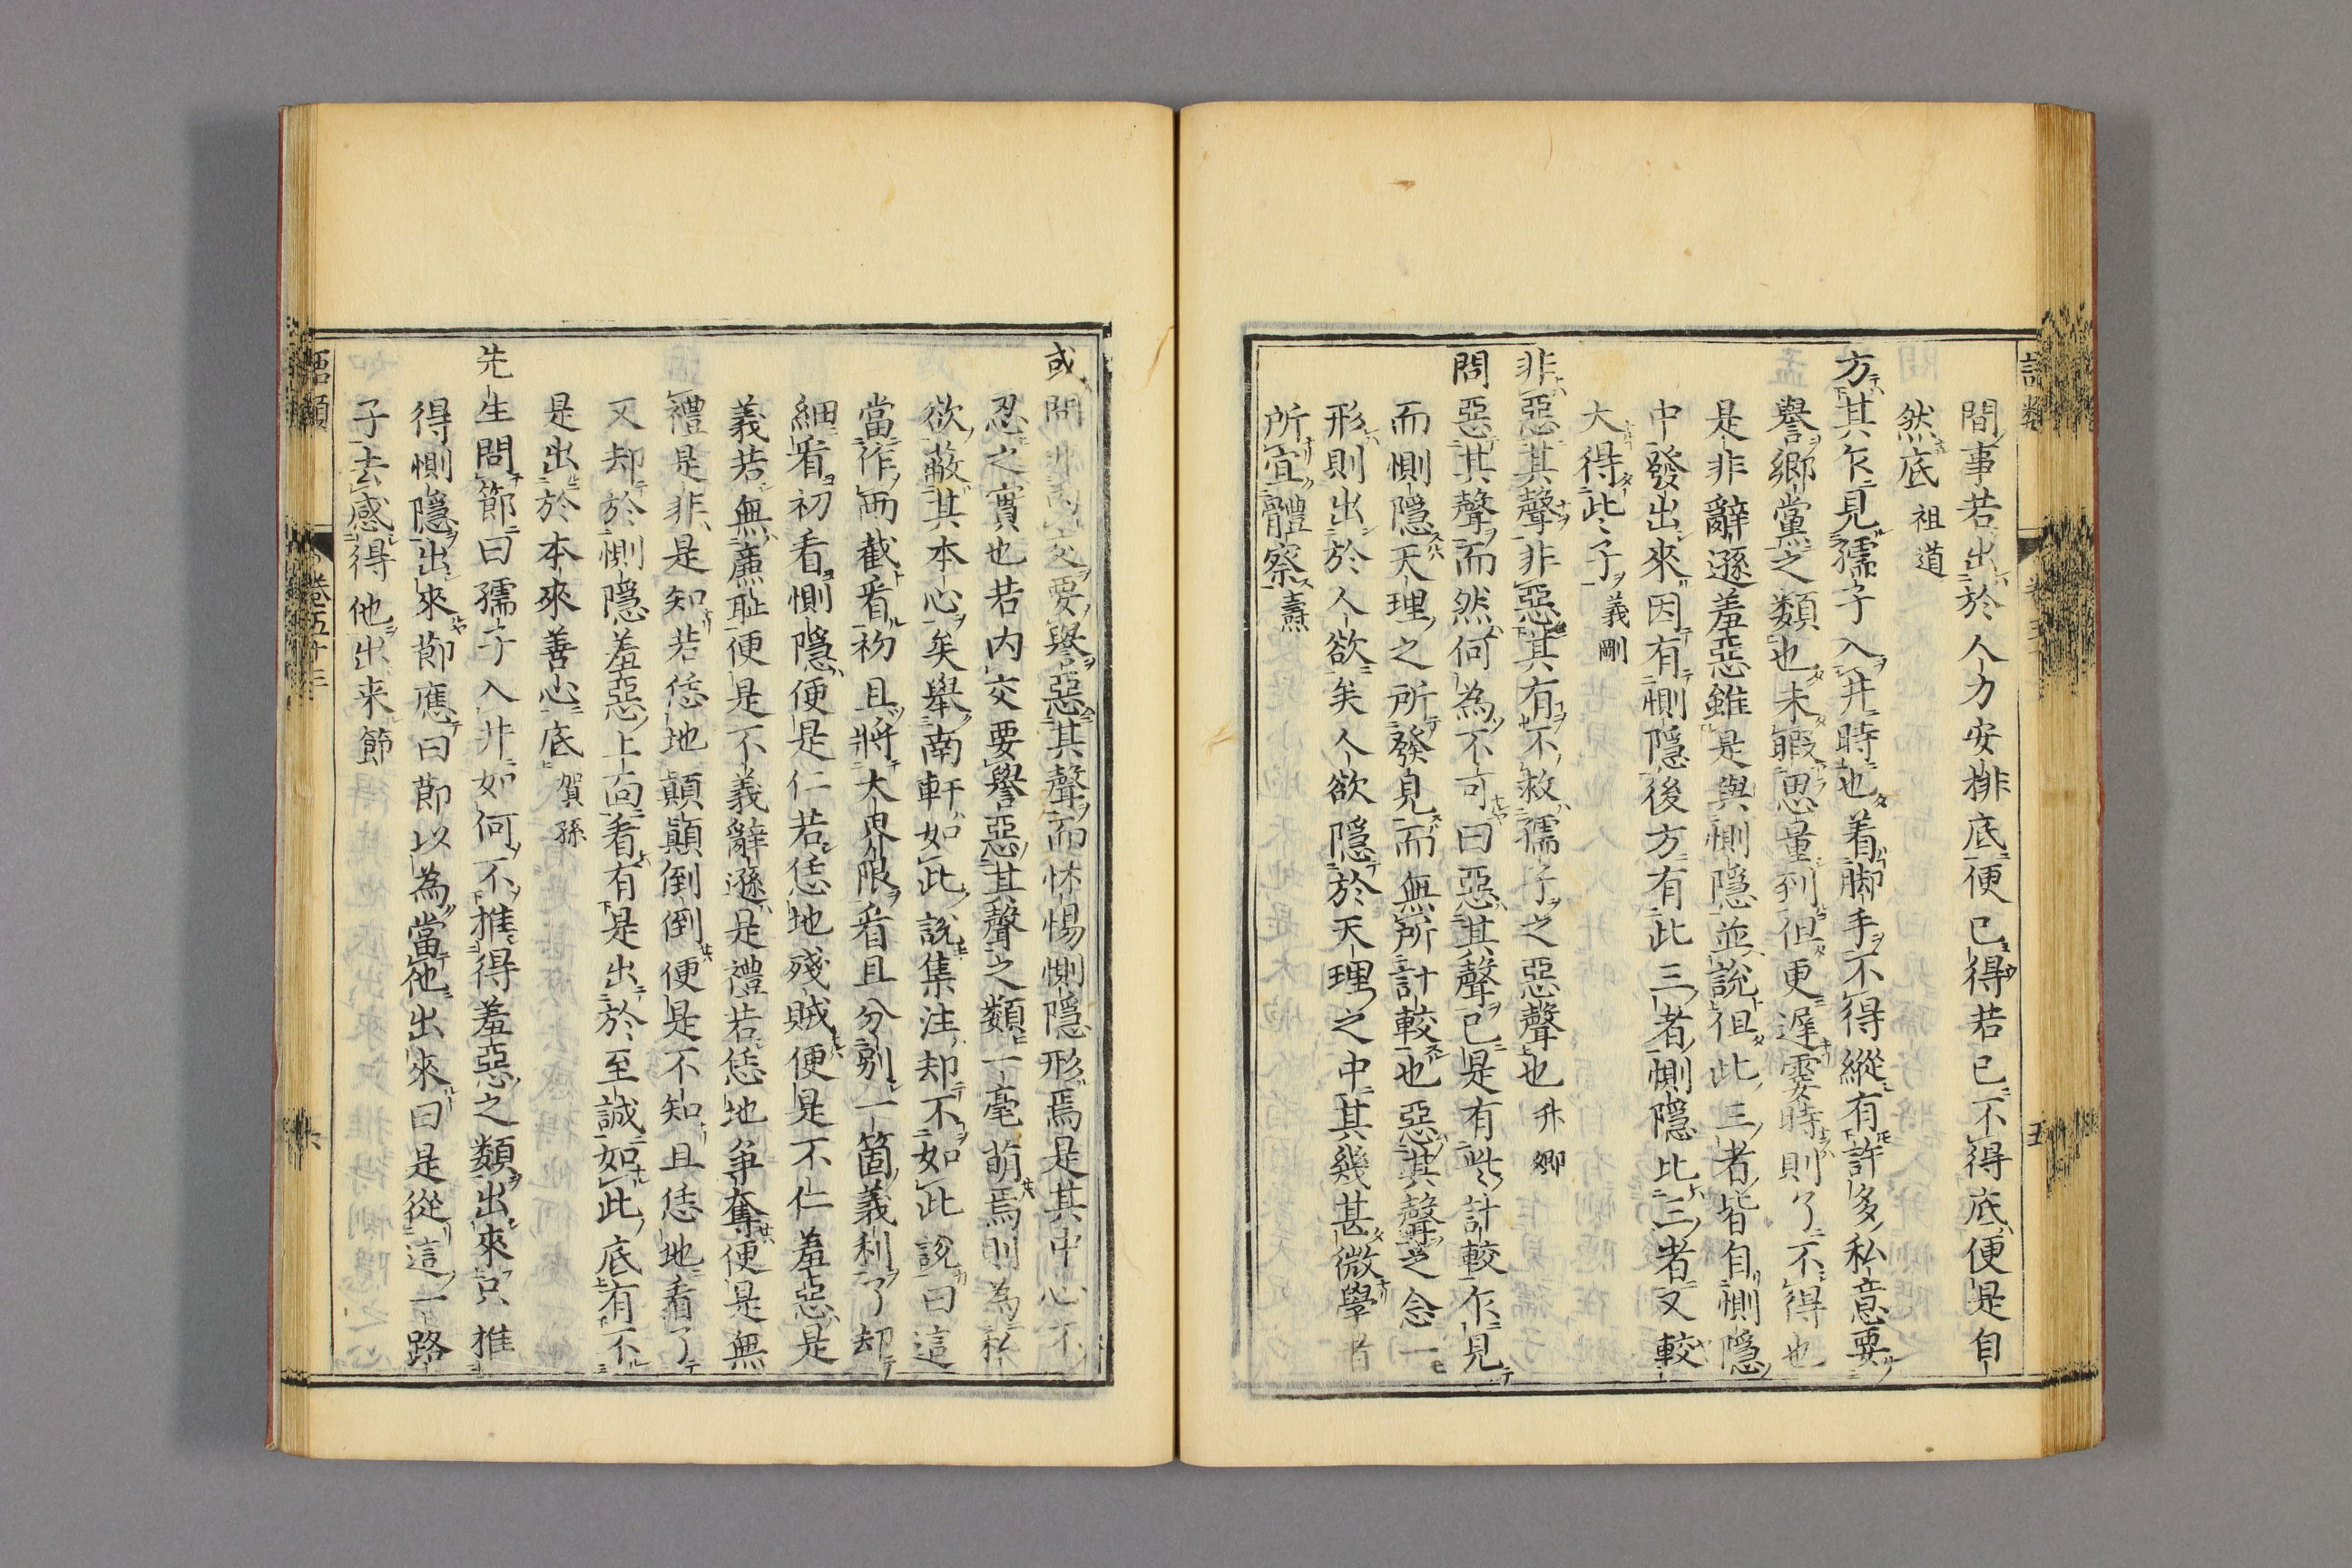 間事若出於人力安排底便已得若已不得底便是自
然底祖道
方其乍見孺子入井時也着脚手不得縱有許多私意要
譽鄉黨之類也未暇思量到但更遲霎時則了不得也
是非辭遜羞惡雖是與惻隱並說但此三者皆自惻隱
中發出來因有惻隱後方有此三者惻隱比三者又較
大得些子義剛
非惡其聲非惡其有不救孺子之惡聲也升卿
問惡其聲而然何為不可曰惡其聲已是有些計較乍見
而惻隱天理之所發見而無所計較也惡其聲之念一
形則出於人欲矣人欲隱於天理之中其幾甚微學者
所宜體察燾
或問非內交要譽惡其聲而怵惕惻隱形焉是其中心不
忍之實也若內交要譽惡其聲之類一毫萌焉則為私
欲蔽其本心矣舉南軒如此說集注却不如此說曰這
當作兩截看初且將大界限看且分別一箇義利了却
細看初看惻隱便是仁若恁地殘賊便是不仁羞惡是
義若無廉耻便是不義辭遜是禮若恁地爭奪便是無
禮是非是知若恁地顛顛倒倒便是不知且恁地看了
又却於惻隱羞惡上面看有是出於至誠如此底有不
是出於本來善心底賀孫
先生問節曰孺子入井如何不推得羞惡之類出來只推
得惻隱出來節應曰節以為當他出來曰是從這一路
子去感得他出来節
語類
卷五十三
六